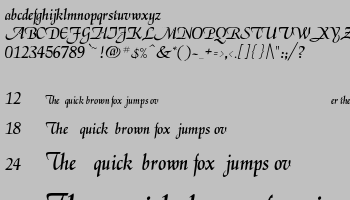 abcdefghijklmnopqrstuvwxyz
ABCDEFGHIJKLMNOPQRSTUVWXYZ
0123456789 `!@#$%^&*()-_+=>,<.[]{}/\":;/?
12 The quick brown fox jumps ov er the
18 The quick brown fox jumps ov
24 The quick brown fox jumps ov